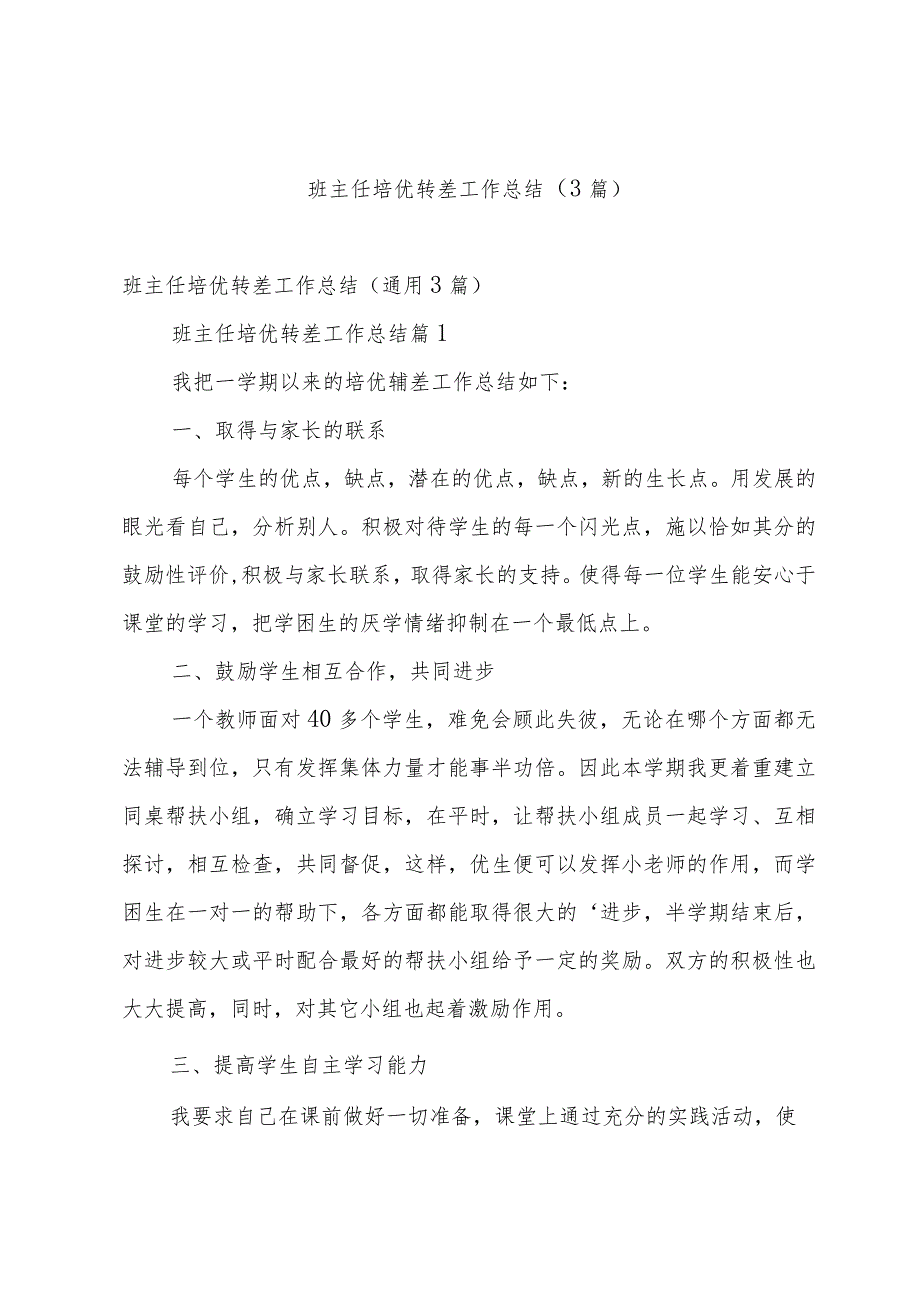 班主任培优转差工作总结（3篇）
班主任培优转差工作总结（通用3篇）
班主任培优转差工作总结篇1
我把一学期以来的培优辅差工作总结如下：
一、取得与家长的联系
每个学生的优点，缺点，潜在的优点，缺点，新的生长点。用发展的
眼光看自己，分析别人。积极对待学生的每一个闪光点，施以恰如其分的
鼓励性评价,积极与家长联系，取得家长的支持。使得每一位学生能安心于
课堂的学习，把学困生的厌学情绪抑制在一个最低点上。
二、鼓励学生相互合作，共同进步
一个教师面对40多个学生，难免会顾此失彼，无论在哪个方面都无
法辅导到位，只有发挥集体力量才能事半功倍。因此本学期我更着重建立
同桌帮扶小组，确立学习目标，在平时，让帮扶小组成员一起学习、互相
探讨，相互检查，共同督促，这样，优生便可以发挥小老师的作用，而学
困生在一对一的帮助下，各方面都能取得很大的‘进步，半学期结束后，
对进步较大或平时配合最好的帮扶小组给予一定的奖励。双方的积极性也
大大提高，同时，对其它小组也起着激励作用。
三、提高学生自主学习能力
我要求自己在课前做好一切准备，课堂上通过充分的实践活动，使